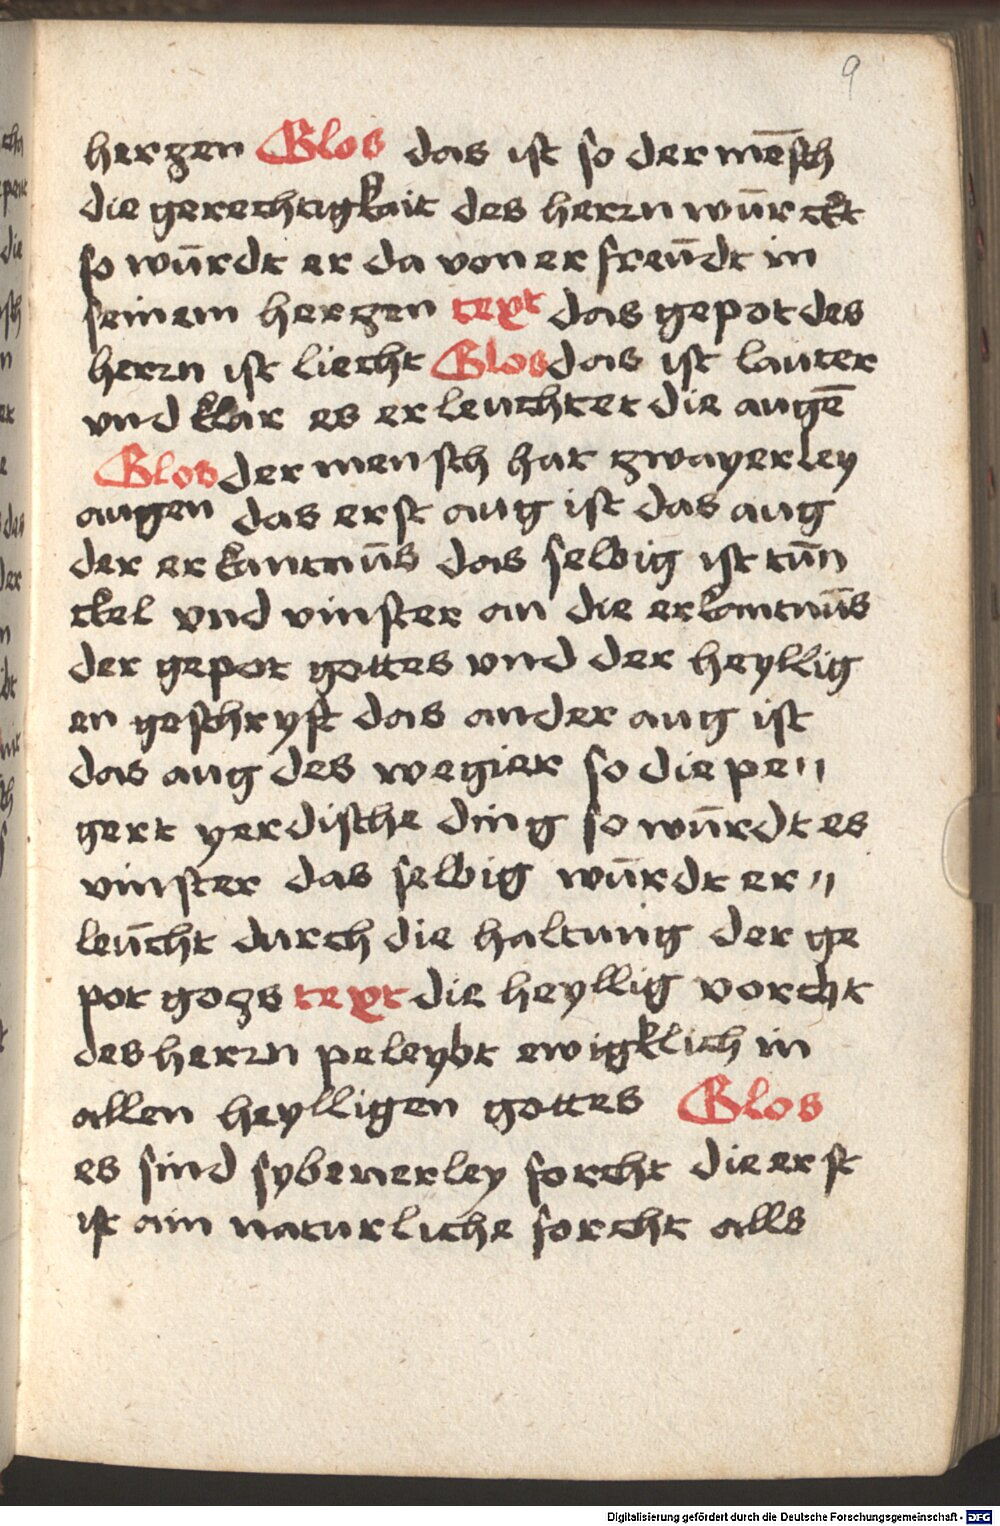 9
herczen Glos das ist so der mēsch
die gerechtigkait des herrn wūrckt
so wūrdt er da von er freūdt in
seinem herczen text das gepot des
herrn ist liecht Glos das ist lauter
vnd klar es er leuchtet die augē
Glos der mensch hat zwayerley
augen das erst aug ist das aug
der er kantnūs das selbig ist tūn
ckel vnd vinster an die erkantnūs
der gepot gottes vnd der heyllig
en geschryft das ander aug ist
das aug des wegier so die pe〃
gert yerdische ding so wūrdt es
vinster das selbig wūrdt er〃
leūcht durch die haltung der ge
pot gozs text die heyllig vorcht
des herrn peleybt ewigklich in
allen heylligen gottes Glos
es sind sybenerley forcht die erst
ist ain naturliche forcht alls
Digitalisierung gefördert durch die Deutsche Forschungsgemeinschaft - DFG